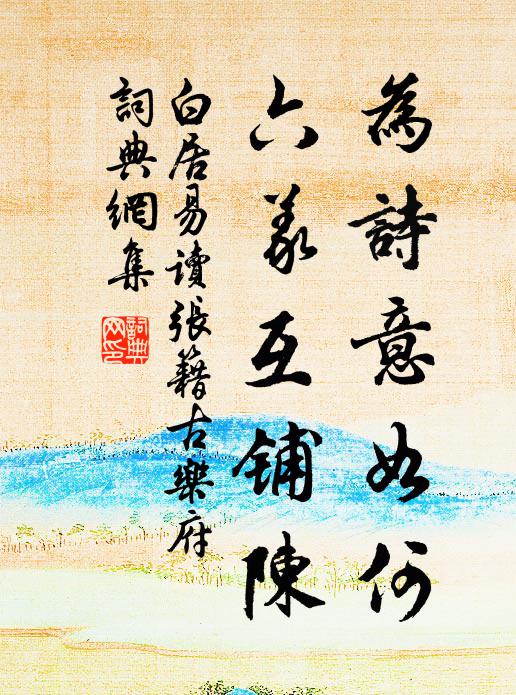 為詩意如何
六義互鋪陳
白居易讀張籍古樂府
詞典網集
詞典
网印